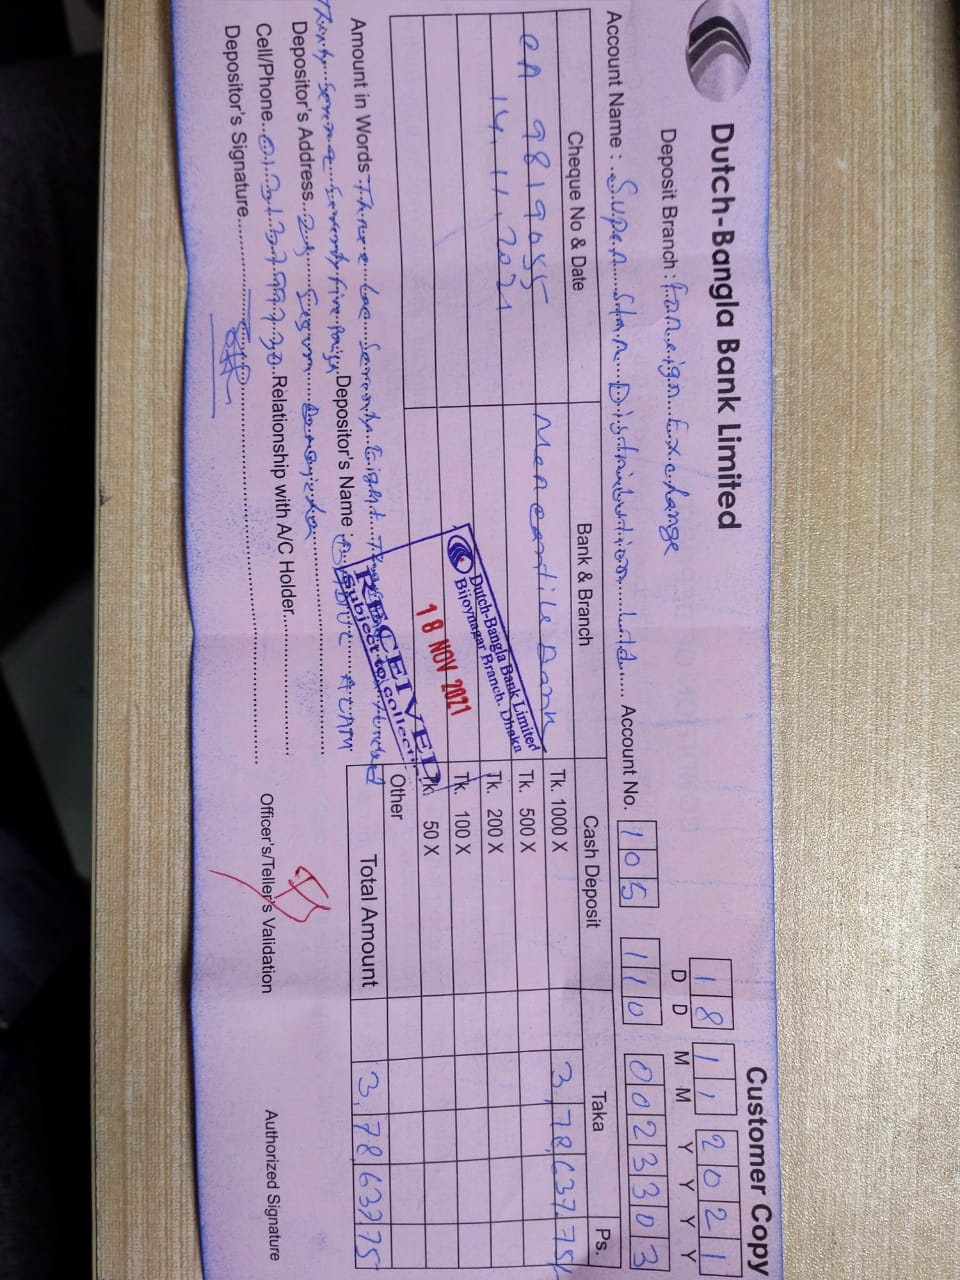 Customer Copy
Dutch-Bangla Bank Limited
1 8 1 1 2 0 2 1
D D M M Y Y Y Y
Deposit Branch : Foreign Exchange
Account Name : Super Star Distribution Ltd. Account No. 105 110 0023303
Cheque No & Date Bank & Branch Cash Deposit Taka Ps.
CA 9819055 Mercantile Bank Tk. 1000 X 3,78,637.75/
14.11.2021 Tk. 500 X
Tk. 200 X
Tk. 100 X
Tk. 50 X
Other
Total Amount 3,78,637.75
Dutch-Bangla Bank Limited
Bijoynagar Branch, Dhaka
18 NOV 2021
RECEIVED
Subject to collection
Amount in Words Three Lac Seventy Eight
Thirty Seven & Seventy five paisa Depositor's Name :
Depositor's Address
Cell/Phone Relationship with A/C Holder
Depositor's Signature
Officer's/Teller's Validation
Authorized Signature